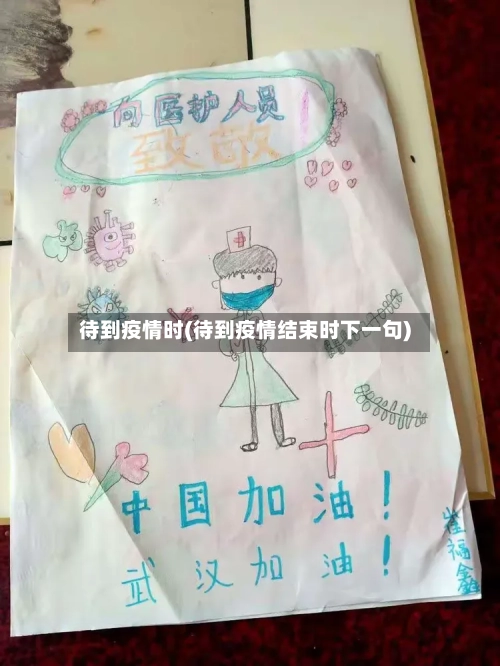 向医护人员
致敬
待到疫情时(待到疫情结束时下一句)
中国加油!
武汉加油!
崔福鑫